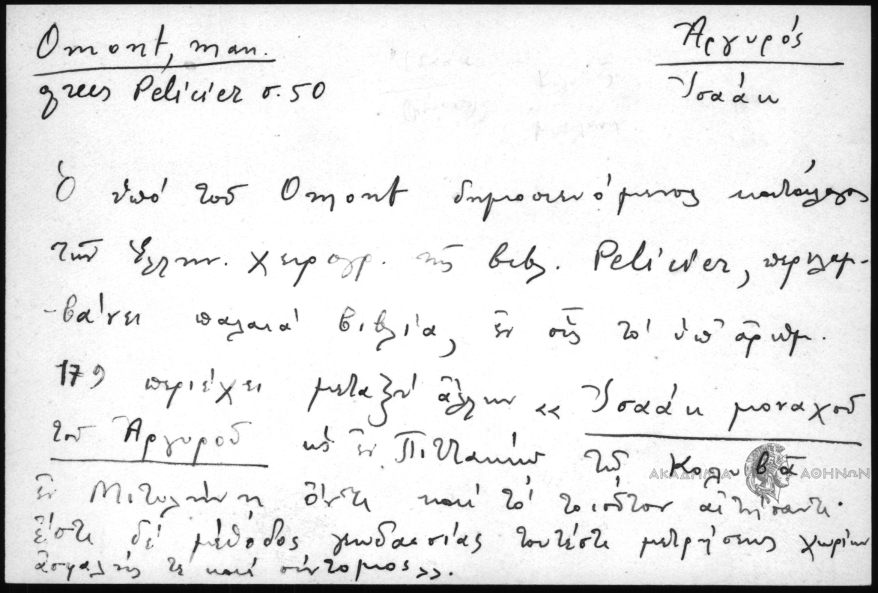 Omont, man.
grecs Pelicier σ. 50
Ἀργυρός
Ἰσαάκ
Ὁ ὑπό τοῦ Omont δημοσιευόμενος κατάλογος
τῶν ἑλλην. χειρογρ. τῆς βιβλ. Pelicier, περιλαμ-
-βάνει παλαιά βιβλία, ἐν οἷς τό ὑπ' ἀριθμ.
179 περιέχει μεταξύ ἄλλων « Ἰσαάκ μοναχοῦ
τοῦ Ἀργυροῦ ἐν Πιττακίῳ τῷ Κολυβᾷ
ἐν Μιτυλήνῃ ὄντι καί τό τοιοῦτον αἰτήσαντι·
ἔστι δέ μέθοδος γεωδαισίας τουτέστι μετρήσεως χωρίων
ἀσφαλής τε καί σύντομος».
ΑΚΑΔΗΜΙΑ ΑΘΗΝΩΝ